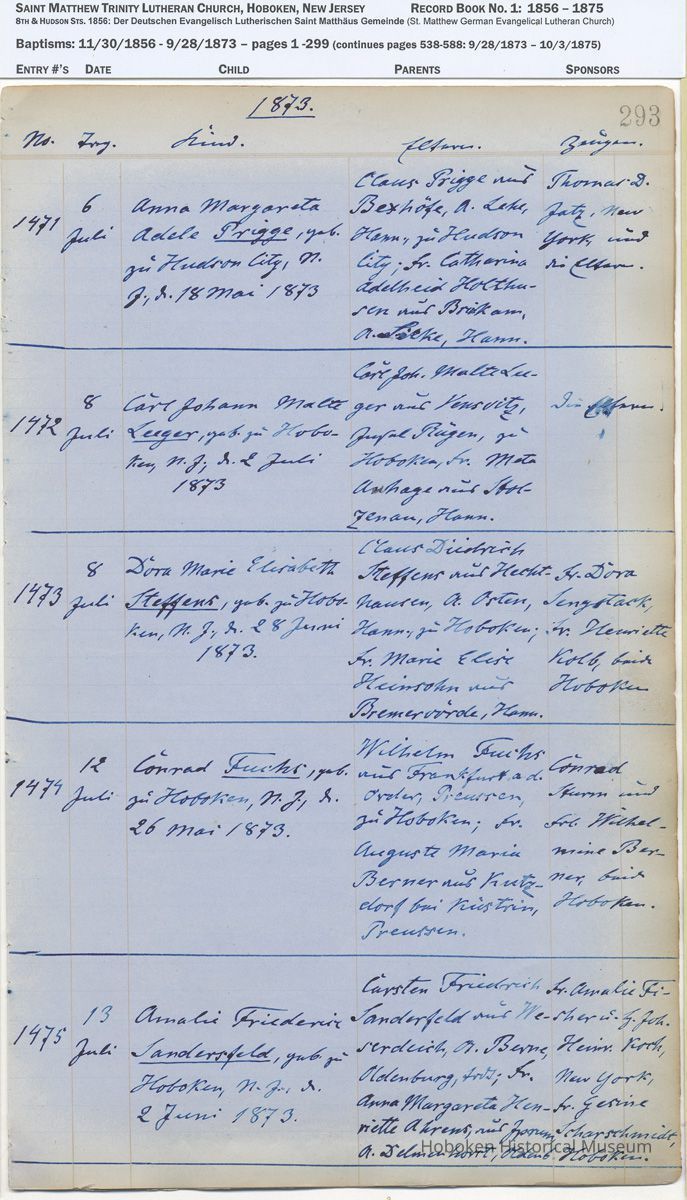 SAINT MATTHEW TRINITY LUTHERAN CHURCH, HOBOKEN, NEW JERSEY RECORD BOOK NO. 1: 1856 – 1875
8TH & HUDSON STS. 1856: Der Deutschen Evangelisch Lutherischen Saint Matthäus Gemeinde (St. Matthew German Evangelical Lutheran Church)
Baptisms: 11/30/1856 - 9/28/1873 – pages 1 -299 (continues pages 538-588: 9/28/1873 – 10/3/1875)
ENTRY #'S DATE CHILD PARENTS SPONSORS
1873.
293
No. Tag. Kind. Eltern. Zeugen.
1471
6
Juli
Anna Margareta
Adele Prigge, geb.
zu Hudson City, N.
J., d. 18 Mai 1873
Claus Prigge aus
Bexhöfe, A. Lehe,
Hann., zu Hudson
City; Fr. Catharina
Adelheid Holthu-
sen aus
A. Hann.
Thomas D.
New
York, und
die Eltern.
1472
8
Juli
Carl Johann Malte
Leeger, geb. zu Hobo-
ken, N. J., d. 2 Juli
1873
Carl Joh. Malte Lee-
ger aus
Insel Rügen, zu
Hoboken, Fr. Meta
Anhage aus Stol-
zenau, Hann.
Die Eltern.
1473
8
Juli
Dora Marie Elisabeth
Steffens, geb. zu Hobo-
ken, N. J., d. 28 Juni
1873.
Claus Diedrich
Steffens aus Hecht-
hausen, A. Osten,
Hann., zu Hoboken;
Fr. Marie Elise
Heinsohn aus
Bremervörde, Hann.
Fr. Dora
Sengstack,
Fr. Henriette
Kolb, beide
Hoboken
1474
12
Juli
Conrad Fuchs, geb.
zu Hoboken, N. J., d.
26 Mai 1873.
Wilhelm Fuchs
aus Frankfurt a.d.
Preussen,
zu Hoboken; Fr.
Auguste Maria
Berner aus Kutz-
dorf bei Küstrin,
Preussen.
Conrad
Sturm und
Frl. Wilhel-
mine Ber-
ner, beide
Hoboken.
1475
13
Juli
Amalie Friederice
Sandersfeld, geb. zu
Hoboken, N. J., d.
2 Juni 1873.
Carsten Friedrich
Sanderfeld aus We-
serdeich, A. Berne,
Oldenburg, Fr.
Anna Margareta Hen-
riette Ahrens, aus
A. Delmenhorst,
Fr. Amalie Fi-
scher u. H. Joh.
Heinr. Koch,
New York,
Fr. Gesine
Scharschmidt,
Hoboken.
Hoboken Historical Museum